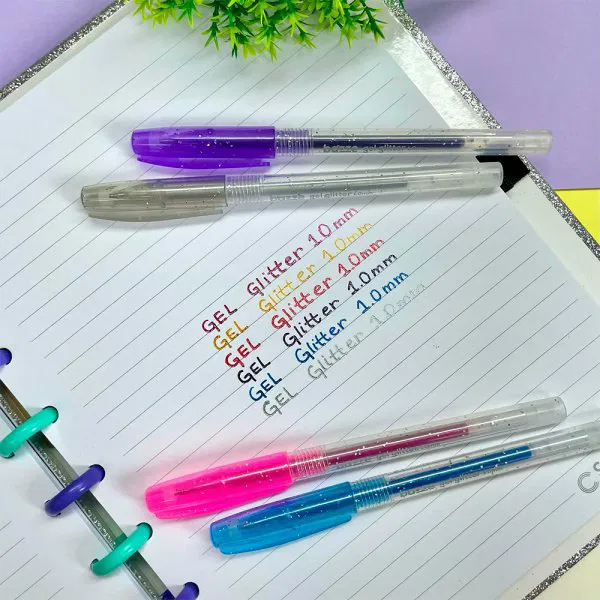 GEL Glitter 1.0mm
GEL Glitter 1.0mm
GEL Glitter 1.0mm
GEL Glitter 1.0mm
GEL Glitter 1.0mm
GEL Glitter 1.0mm